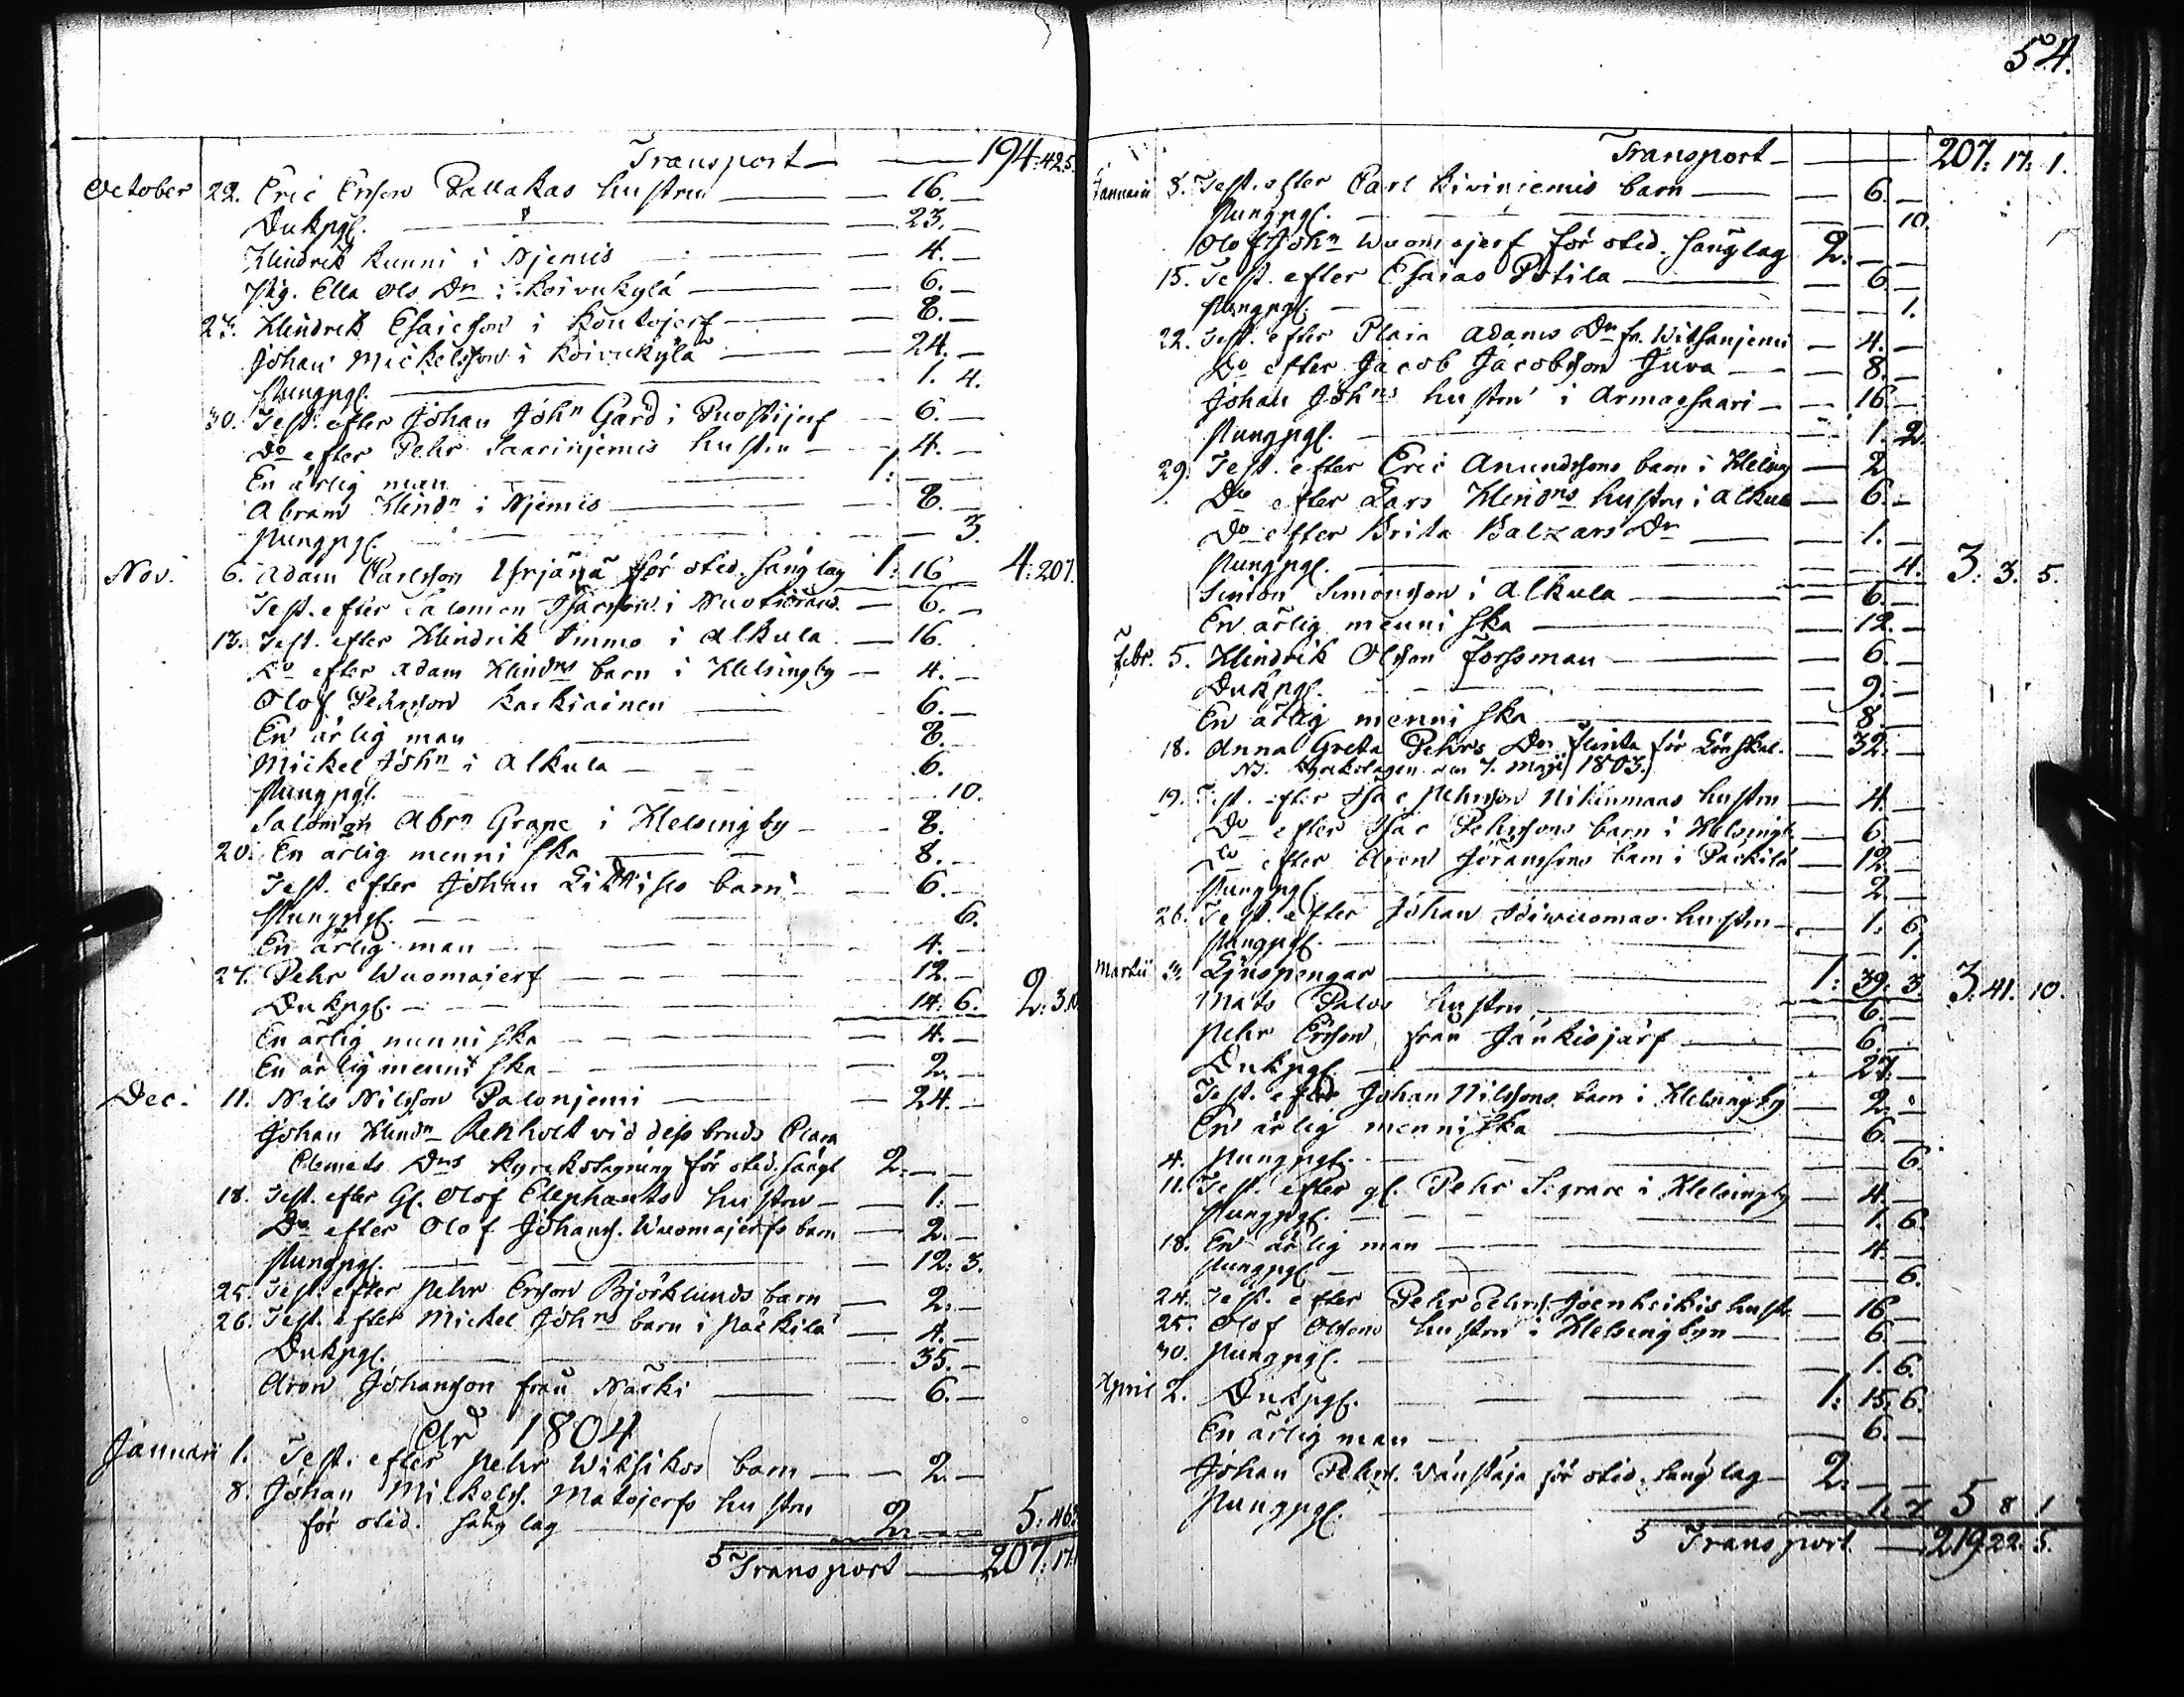 Transport — 194:42.5
October 22. Eric Ersson Pallakas hustru — 16. —
Dukpgr. — 23. —
Hindrik Kunni i Njemis — 4. —
Pig. Ella Ols Dr i Koivukylä — 6. —
23. Hindrik Esaiesson i Kontojerf — 8. —
Johan Mickelsson i Koivukylä — 24. —
Pungpgr. — 1. 4.
30. Test. efter Johan John Gard i Puostijerf — 6. —
Do efter Pehr Saarinjemis hustru — 4. —
En ärlig man — 1: —
Abram Hindn i Njemis — 8. —
Pungpgr. — 3.
Nov. 6. Adam Carlsson Yrjänä för otid. sänglag 1: 16 — 4:207.
Test. efter Salomon — 6. —
13. Test. efter Hindrik Immo i Alkula — 16.
Do efter Adam Hindns barn i Helsingby — 4. —
Olof Pehrsson Karkiainen — 6. —
En ärlig man — 8. —
Mickel John i Alkula — 6. —
Pungpgr. — 10.
Salomon Abrn Grape i Helsingby — 8.
20. En ärlig menniska — 8. —
Test. efter Johan barn — 6. —
Pungpgr. — 6.
En ärlig man — 4. —
27. Pehr Wuomajerf — 12. —
Dukpgr. — 14. 6. 2:3.10
En ärlig menniska — 4. —
En ärlig menniska — 2. —
Dec. 11. Nils Nilsson Palonjemi — 24. —
Johan Hindn Renholt vid dess bruds Clara
Clemets Drs kyrkotagning för otid. sängl 2. —
18. Test. efter Gl. Olof Elephants hustru — 1: —
Do efter Olof Johans. Wuomajerfs barn — 2. —
Pungpgr. — 12: 3.
25. Test. efter Pehr Ersson Björklunds barn — 2. —
26. Test. efter Mickel Johns barn i Päckilä — 4. —
Dukpgr. — 35. —
Aron Johansson från Närki — 6. —
År 1804
Januarii 1. Test. efter Pehr Wiksikos barn — 2. —
8. Johan Mickelss. Matojerfs hustru
för otid. sänglag — 2. — 5:46.
5 Transport — 207:17.
54.
Transport — 207: 17. 1.
Januarii 8. Test. efter Carl Kivinjemis barn — 6. —
Pungpgr. — 10.
Olof John Wuomajerf för otid. sänglag 2. —
15. Test. efter Esaias Potila — 6. —
Pungpgr. — 1.
22. Test. efter Adams Dr fr. Witsanjemi — 4. —
Do efter Jacob Jacobsson Juva — 8. —
Johan Johns hustru i Armassaari — 16. —
Pungpgr. — 1. 2.
29. Test. efter Eric Anundssons barn i Helsing — 2
Do efter Lars Hindns hustru i Alkul — 6. —
Do efter Brita Balzars Dr — 1. —
Pungpgr. — 4. 3. 3. 5.
Simon Simonsson i Alkula — 6. —
En ärlig menniska — 12. —
Febr. 5. Hindrik Olsson Forssman — 6. —
Dukpgr. — 9. —
En ärlig menniska — 8. —
18. Anna Greta Pehrs Dr Flinta för Lönskal. — 32. —
NB. Kyrkotagen den 7. Maji 1803.
19. Test. efter Isac Pehrsson Nikinmaas hustru — 4. —
Do efter Isac Pehrssons barn i Helsingb. — 6. —
Do efter Aron Göranssons barn i Päckilä — 12. —
Pungpgr. — 2. —
26. Test. efter Johan hustru — 1. 6.
Pungpgr. — 1.
Martii 3. Ljuspengar — 1: 39. 3. 3. 41. 10.
Mats Palos hustru — 6. —
Pehr Ersson från Jänkisjärf — 6. —
Dukpgr. — 27. —
Test. efter Johan Nilssons barn i Helsingby — 2. —
En ärlig menniska — 6. —
4. Pungpgr. — 6.
11. Test. efter gl. Pehr i Helsingby — 4. —
Pungpgr. — 1. 6.
18. En ärlig man — 4. —
Pungpgr. — 6.
24. Test. efter Pehr Pehrs. Joenheikis hustr — 16 —
25. Olof Olssons hustru i Helsingbyn — 6. —
30. Pungpgr. — 1. 6.
April 2. Dukpgr. — 1: 15. 6.
En ärlig man — 6. —
Johan Pehrs. Wänstäjä för otid. sänglag — 2. —
Pungpgr. — 1. 7. 5 8 1
5 Transport — 219.22. 5.